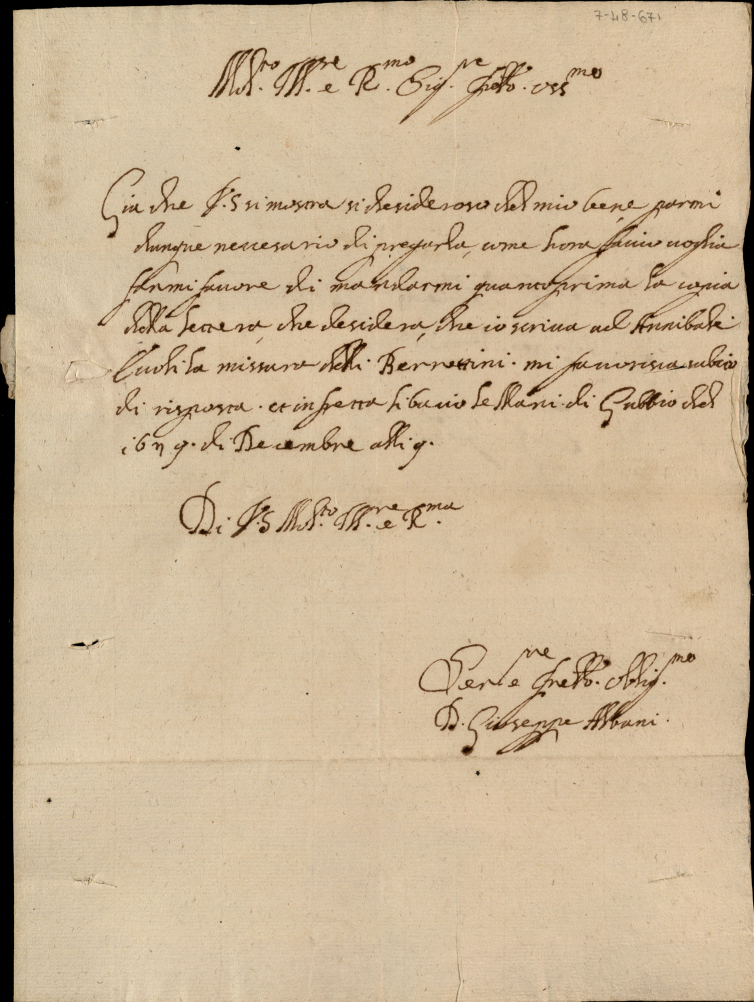 7-48-671
Mol.to Ill.re e R.mo Sig.re fratello. oss.mo
Gia che V.S si mostra si desideroso del mio bene parmi
dunque necessario di pregarla, come hora faccio voglia
farmi favore di mandarmi quanto prima la copia
della lettera, che desidera, che io scriva ad Annibale
la missura delli Berrettini. mi favorisca subito
di risposta. et in fretta li bacio le Mani. di Gubbio del
di Decembre alli 9.
Di V.S Mol.to Ill.re e R.ma
Ser.re e fratello. oblig.mo
D. Giuseppe Albani.